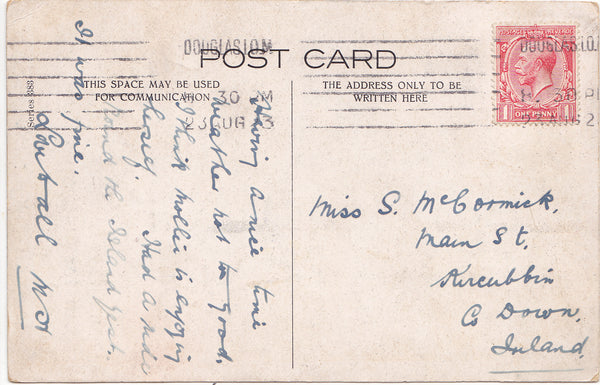 DOUGLAS I.O.M
POST CARD
DOUGLAS I.O.M
THIS SPACE MAY BE USED
FOR COMMUNICATION
THE ADDRESS ONLY TO BE
WRITTEN HERE
30 PM
Series 383
POSTAGE REVENUE
1 ONE PENNY 1
Having a nice time
weather not too good.
I think Mollie is enjoying
herself. Had a ride
round the Island yest.
It was fine.
M
Miss S. McCormick,
Main St,
Kircubbin
Co Down.
Ireland